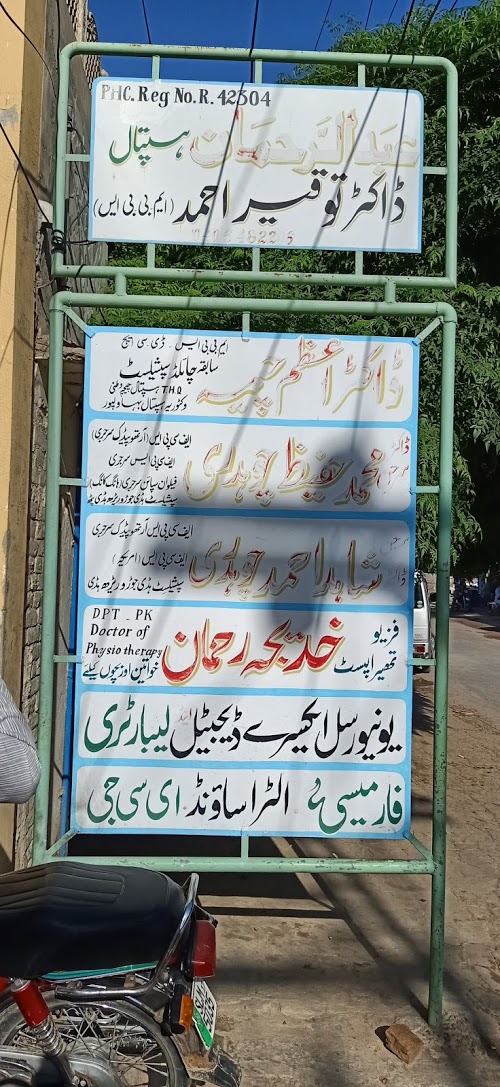 PHC. Reg No. R. 42504
عبدالرحمان ہسپتال
ڈاکٹر توقیر احمد (ایم بی بی ایس)
ڈاکٹر اعظم چیمہ
ایم بی بی ایس ۔ ڈی سی ایچ
سابقہ چائلڈ سپیشلسٹ
THQ ہسپتال
وکٹوریہ ہسپتال بہاولپور
محمد حفیظ چوہدری
ایف سی پی ایس (آرتھوپیڈک سرجری)
ایف سی پی ایس سرجری
فیلو ان سپائن سرجری (ہانگ کانگ)
سپیشلسٹ ہڈی جوڑ و ریڑھ ہڈی
شاہد احمد چوہدری
ایف سی پی ایس آرتھوپیڈک سرجری
ایف سی پی ایس (امریکہ)
سپیشلسٹ ہڈی جوڑ و ریڑھ ہڈی
فزیو تھیراپسٹ خدیجہ رحمان
DPT _ PK
Doctor of
Physiotherapy
خواتین اور بچوں کیلئے
یونیورسل ایکسرے ڈیجیٹل لیبارٹری
فارمیسی الٹراساؤنڈ ای سی جی